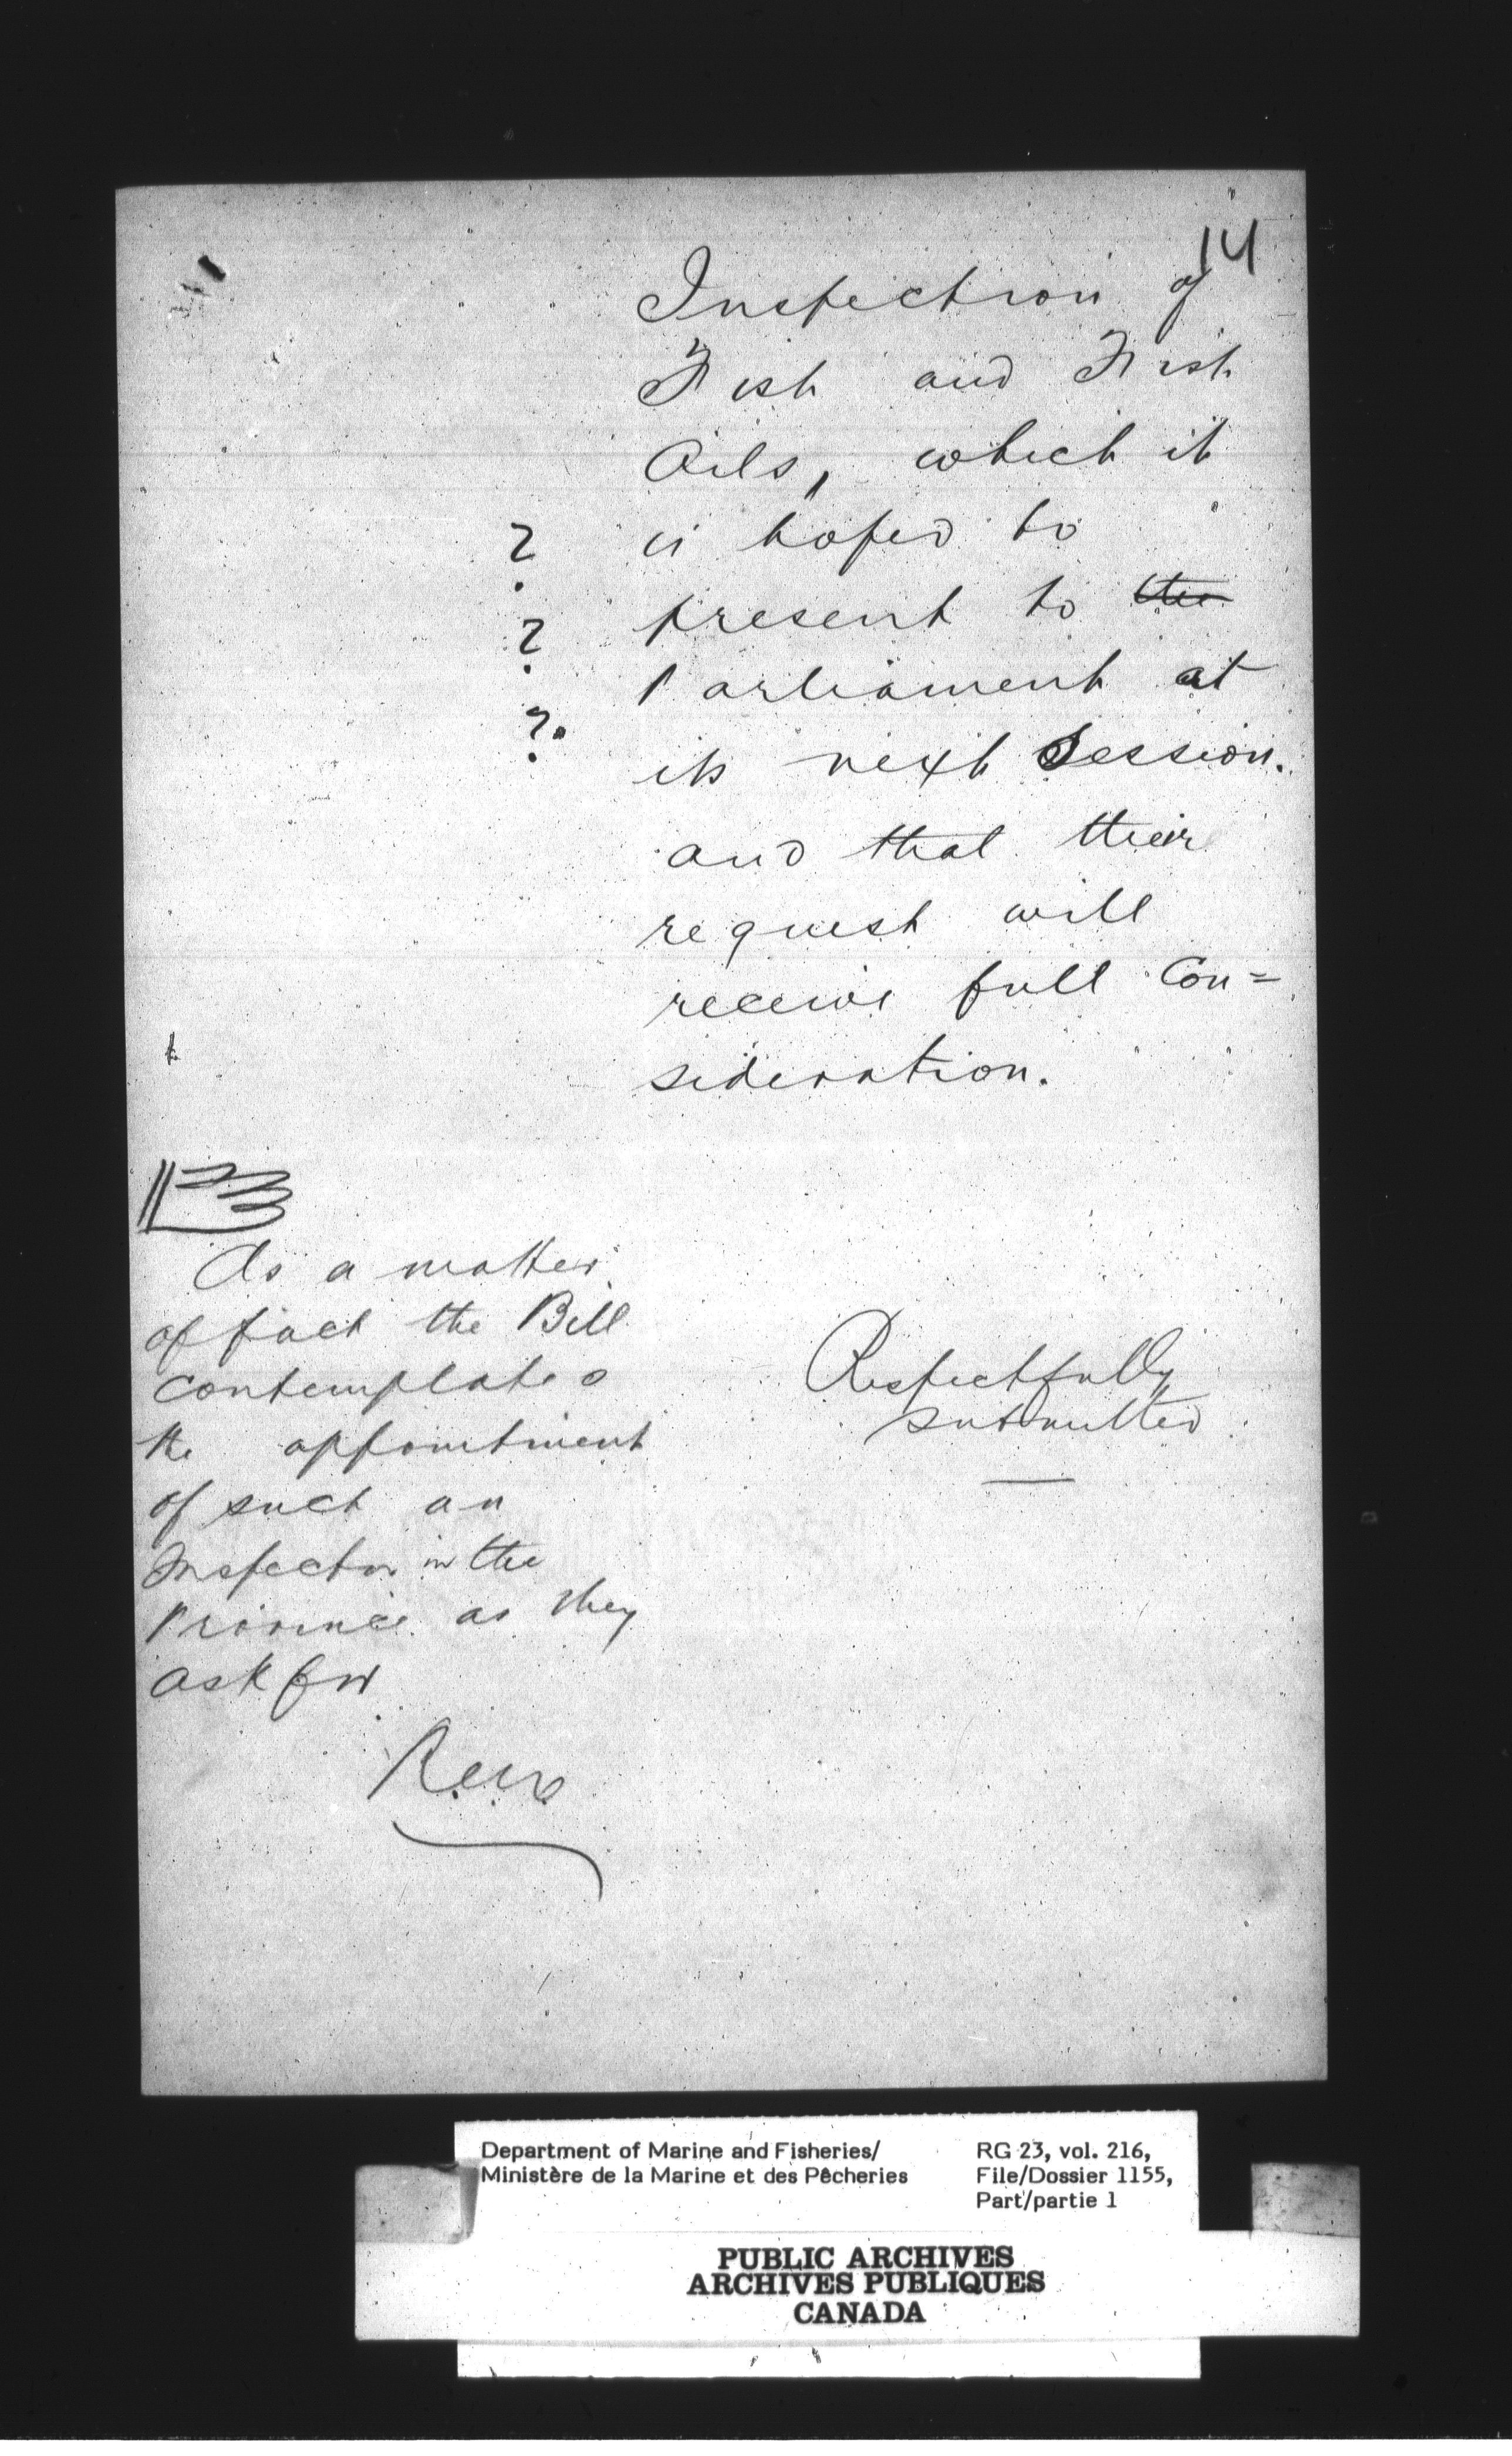 14
Inspection of
Fish and Fish
Oils, which it
? is hoped to
? present to the
Parliament at
? its next Session.
and that their
request will
receive full Con=
sideration.
As a matter
of fact the Bill
contemplates
the appointment
of such an
Inspector in the
Province as they
ask for
Respectfully
submitted
Department of Marine and Fisheries/
Ministère de la Marine et des Pêcheries
RG 23, vol. 216,
File/Dossier 1155,
Part/partie 1
PUBLIC ARCHIVES
ARCHIVES PUBLIQUES
CANADA